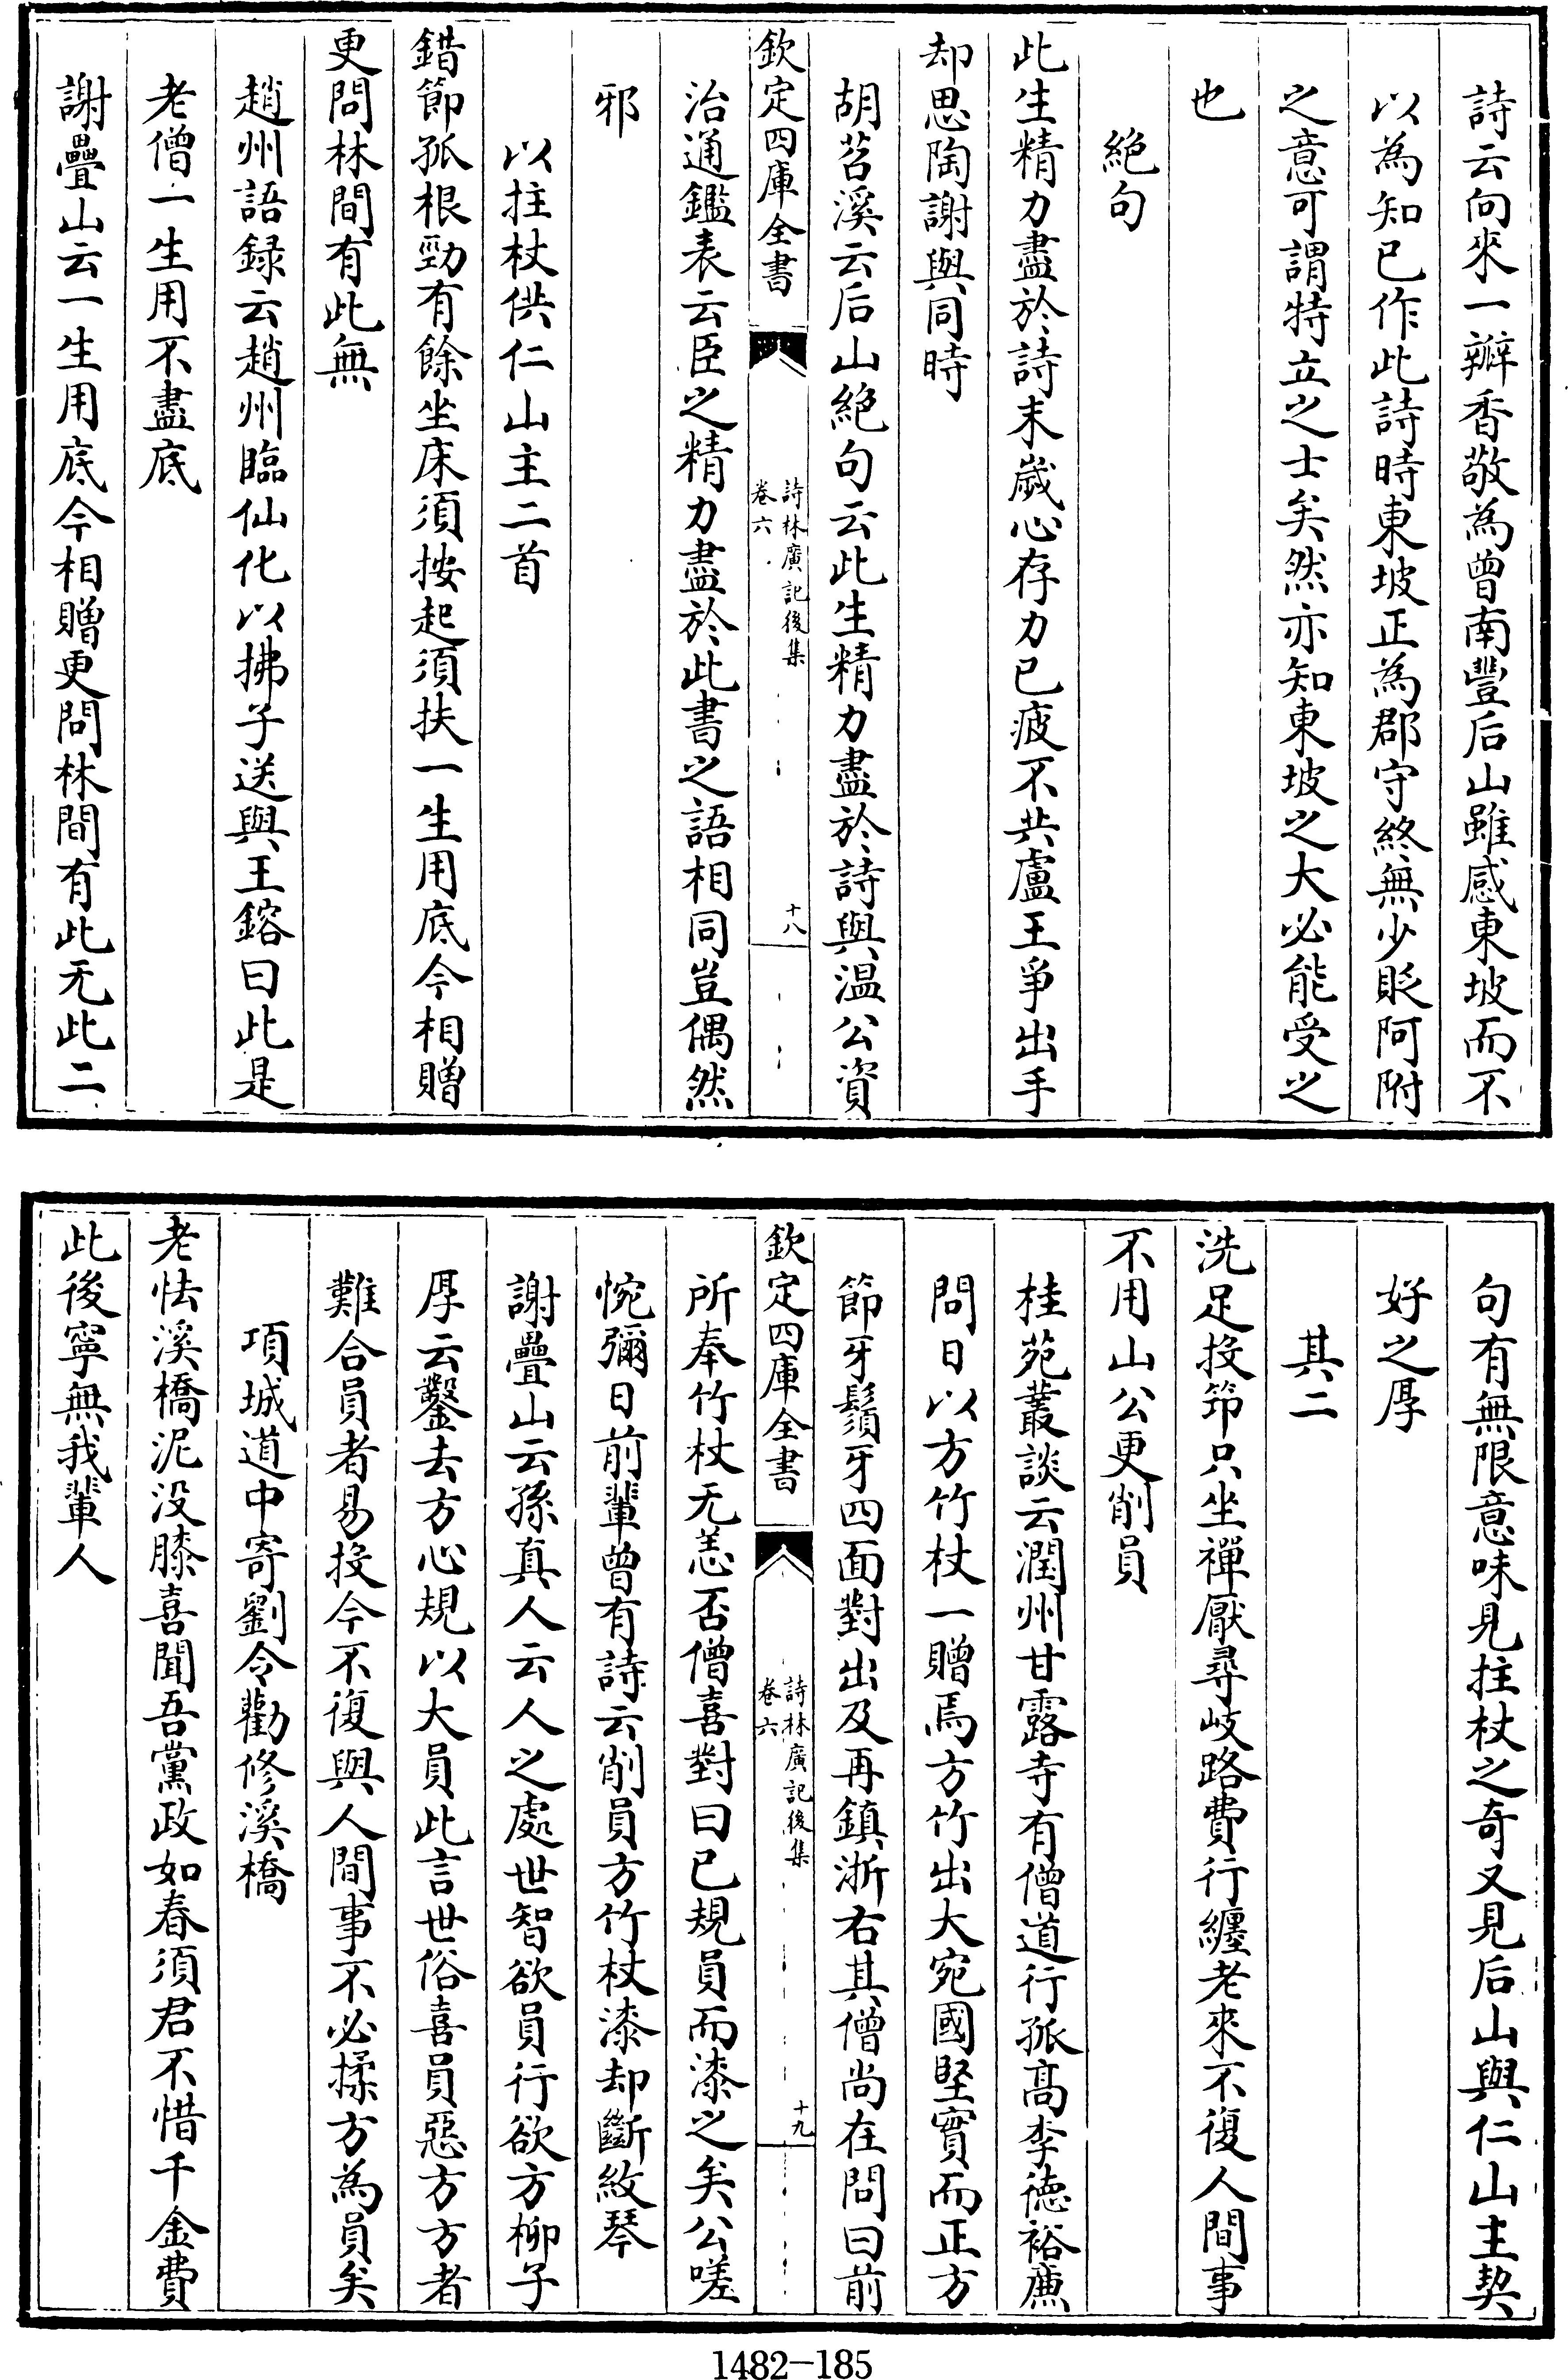 詩云向來一瓣香敬為曾南豐后山雖感東坡而不
以為知已作此詩時東坡正為郡守終無少貶阿附
之意可謂特立之士矣然亦知東坡之大必能受之
也
絶句
此生精力盡於詩末歲心存力已疲不共盧王爭出手
却思陶謝與同時
胡苕溪云后山絶句云此生精力盡於詩與温公資
欽定四庫全書
詩林廣記後集
卷六
十八
治通鑑表云臣之精力盡於此書之語相同豈偶然
邪
以拄杖供仁山主二首
錯節孤根勁有餘坐床須按起須扶一生用底今相贈
更問林間有此無
趙州語録云趙州臨仙化以拂子送與王鎔曰此是
老僧一生用不盡底
謝疊山云一生用底今相贈更問林間有此无此二
句有無限意味見拄杖之奇又見后山與仁山主契
好之厚
其二
洗足投筇只坐禪厭尋岐路費行纏老來不復人間事
不用山公更削員
桂苑叢談云潤州甘露寺有僧道行孤髙李徳裕廉
問日以方竹杖一贈焉方竹出大宛國堅實而正方
節牙鬚牙四面對出及再鎮浙右其僧尚在問曰前
欽定四庫全書
詩林廣記後集
卷六
十九
所奉竹杖无恙否僧喜對曰已規員而漆之矣公嗟
惋彌日前輩曾有詩云削員方竹杖漆却斷紋琴
謝疊山云孫真人云人之處世智欲員行欲方柳子
厚云鑿去方心規以大員此言世俗喜員惡方方者
難合員者易投今不復與人間事不必揉方為員矣
項城道中寄劉令勸修溪橋
老怯溪橋泥没膝喜聞吾黨政如春須君不惜千金費
此後寧無我輩人
1482—185